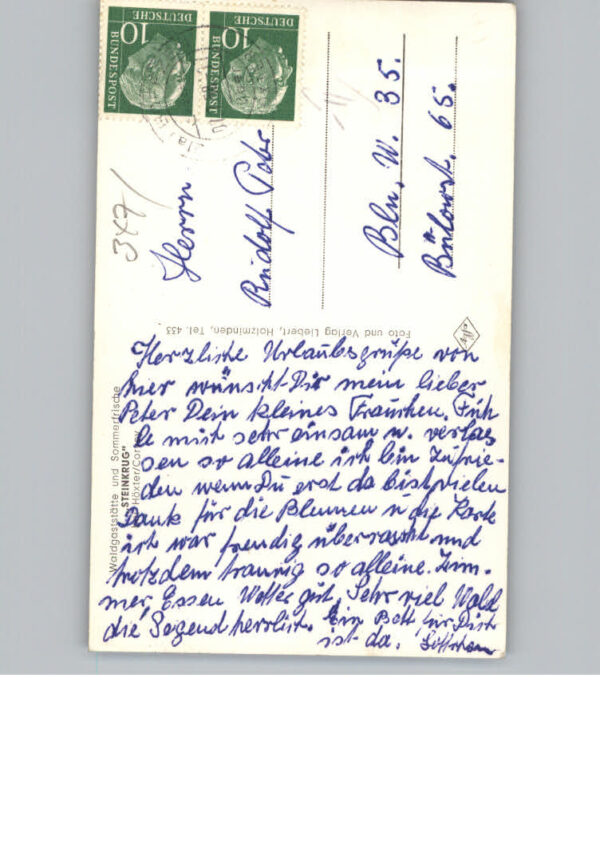 10
DEUTSCHE
BUNDESPOST
10
DEUTSCHE
BUNDESPOST
347/
Herrn
Rudolf
Bln. W. 35.
Bülowst. 65.
Foto und Verlag Liebert, Holzminden, Tel. 433
Waldgaststätte und Sommerfrische
"STEINKRUG"
Höxter/Corvey
Herzliche Urlaubsgrüße von
hier wünscht Dir mein lieber
Peter Dein kleines Frauchen. Füh
le mich sehr einsam u. verlas
sen so alleine ich bin zufrie-
den wenn Du erst da bist vielen
Dank für die Blumen u die Karte
ich war freudig überrascht und
trotzdem traurig so alleine. Zim-
mer, Essen Wetter gut, Sehr viel Wald
die Gegend herrlich. Ein Bett für Dich
ist da.